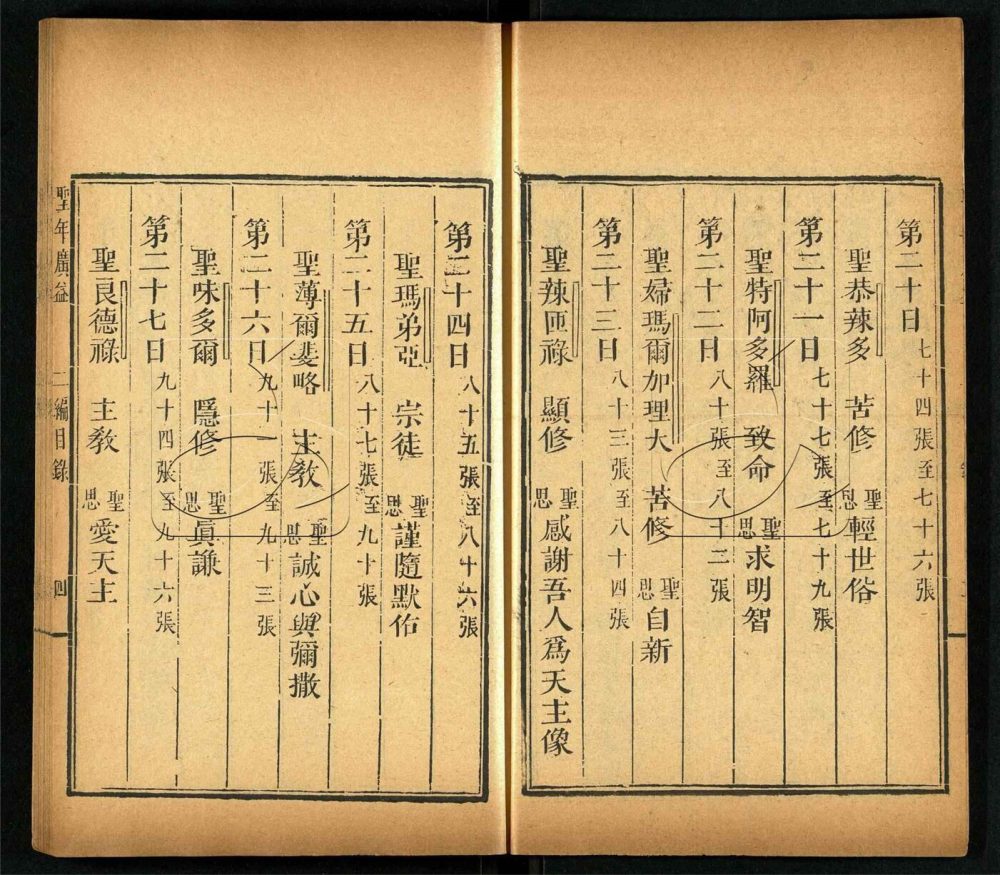 第二十日 七十四張至七十六張
聖恭辣多 苦修 聖思 輕世俗
第二十一日 七十七張至七十九張
聖特阿多羅 致命 聖思 求明智
第二十二日 八十張至八十二張
聖婦瑪爾加理大 苦修 聖思 自新
第二十三日 八十三張至八十四張
聖辣匝祿 顯修 聖思 感謝吾人爲天主像
第二十四日 八十五張至八十六張
聖瑪弟亞 宗徒 聖思 謹隨默佑
第二十五日 八十七張至九十張
聖薄爾斐略 主教 聖思 誠心與彌撒
第二十六日 九十一張至九十三張
聖味多爾 隱修 聖思 眞謙
第二十七日 九十四張至九十六張
聖良德祿 主教 聖思 愛天主
聖年廣益 二編目錄 四